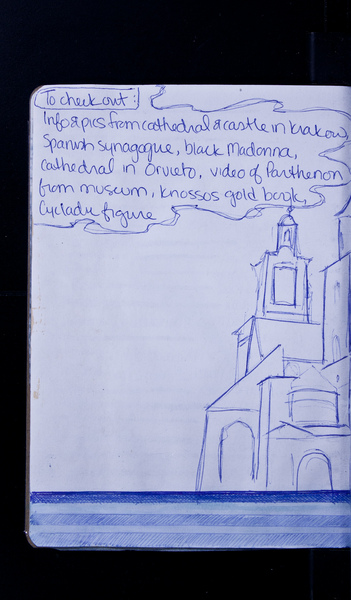 To check out:
Info & pics from cathedral & castle in Krakow,
Spanish synagogue, black Madonna,
cathedral in Orvieto, video of Parthenon
from museum, Knossos gold book,
Cycladic figure